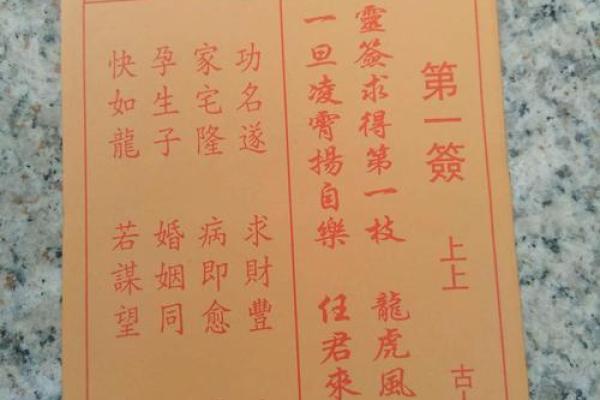 第一簽 上上 古
靈簽求得第一枝 龍虎風
一旦凌霄揚自樂 任君來
功名遂 求財豐
家宅隆 病即愈
孕生子 婚姻同
快如龍 若謀望